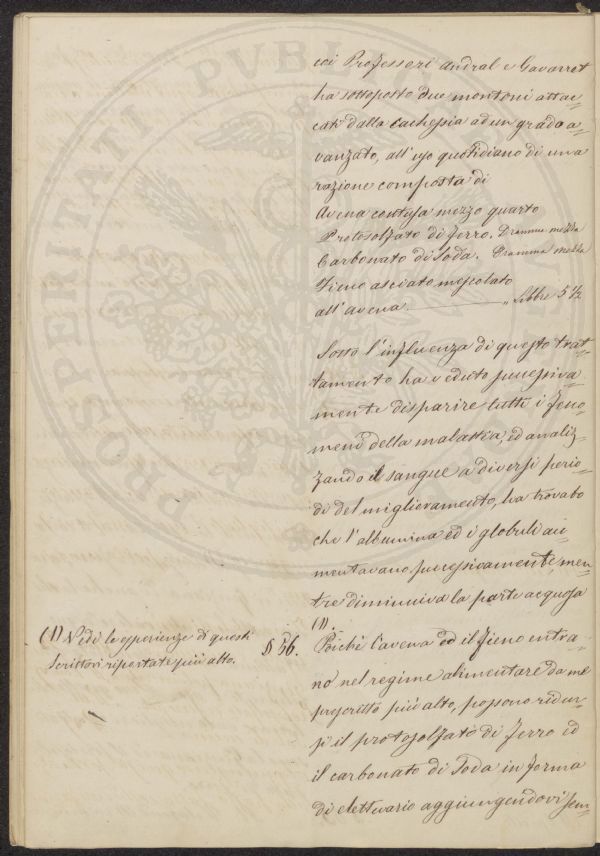 coi Professori Andral e Gavarret
ha sottoposto due montoni attac=
cati dalla Cachessia ad un grado a=
vanzato, all'uso quotidiano di una
razione composta di
Avena contusa mezzo quarto
Protosolfato di ferro. Dramma mezza
Carbonato di Soda. Dramma mezza
Fieno asciato mescolato
all'avena " Libbre 5 1/2
Sotto l'influenza di questo trat=
tamento ha veduto successiva=
mente disparire tutti i feno=
meni della malattia, ed analiz=
zando il sangue a diversi perio=
di del miglioramento, ha trovato
che l'albumina ed i globuli au=
mentavano successivamente, men=
tre diminuiva la parte acquosa
(1).
(1) Vedi le esperienze di questi
Scrittori riportate più alto.
§ 56. Poichè l'avena ed il fieno entra=
no nel regime alimentare da me
prescritto più alto, possono ridur=
si il protosolfato di ferro ed
il carbonato di Soda in forma
di elettuario aggiungendovi sem=
PROSPERITATI PUBL